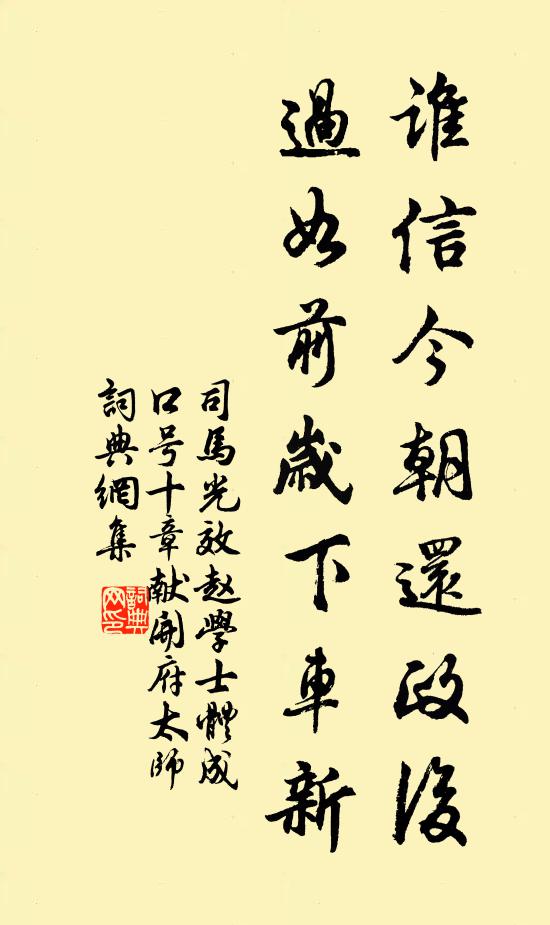 誰信今朝還政後
過如前歲下車新
司馬光效赵學士體成
口号十章献開府太師
詞典網集
詞典网印